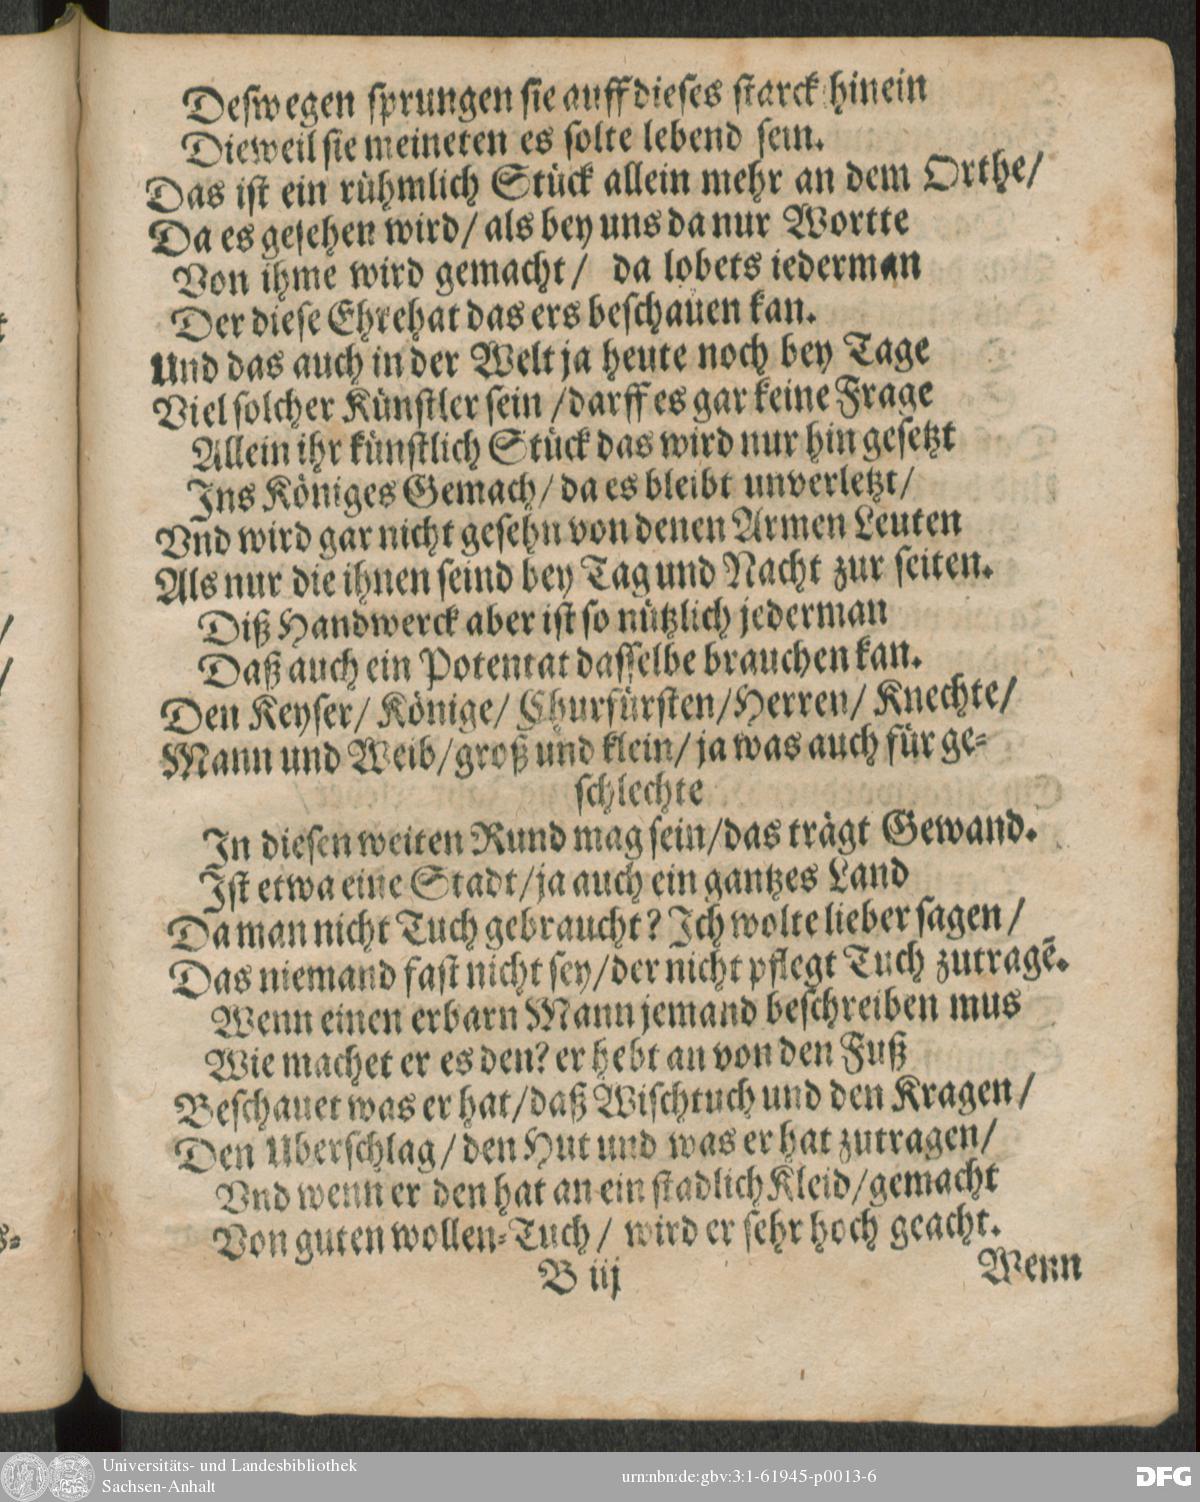 Deswegen sprungen sie auff dieses starck hinein
Dieweil sie meineten es solte lebend sein.
Das ist ein rühmlich Stück allein mehr an dem Orthe/
Da es gesehen wird/ als bey uns da nur Wortte
Von ihme wird gemacht/ da lobets iederman
Der diese Ehre hat das ers beschauen kan.
Und das auch in der Welt ja heute noch bey Tage
Viel solcher Künstler sein /darff es gar keine Frage
Allein ihr künstlich Stück das wird nur hin gesetzt
Ins Königes Gemach/ da es bleibt unverletzt/
Vnd wird gar nicht gesehn von denen Armen Leuten
Als nur die ihnen seind bey Tag und Nacht zur seiten.
Diß Handwerck aber ist so nützlich jederman
Daß auch ein Potentat dasselbe brauchen kan.
Den Keyser/ Könige/ Churfürsten/Herren/ Knechte/
Mann und Weib/groß und klein/ ja was auch für ge-
schlechte
In diesen weiten Rund mag sein/das trägt Gewand.
Ist etwa eine Stadt/ja auch ein gantzes Land
Da man nicht Tuch gebraucht? Ich wolte lieber sagen/
Das niemand fast nicht sey/der nicht pflegt Tuch zutragē.
Wenn einen erbarn Mann jemand beschreiben mus
Wie machet er es den? er hebt an von den Fuß
Beschauet was er hat/daß Wischtuch und den Kragen/
Den Uberschlag/den Hut und was er hat zutragen/
Vnd wenn er den hat an ein stadlich Kleid/gemacht
Von guten wollen-Tuch/ wird er sehr hoch geacht.
B iij
Wenn
s-
Universitäts- und Landesbibliothek
Sachsen-Anhalt
urn:nbn:de:gbv:3:1-61945-p0013-6
DFG